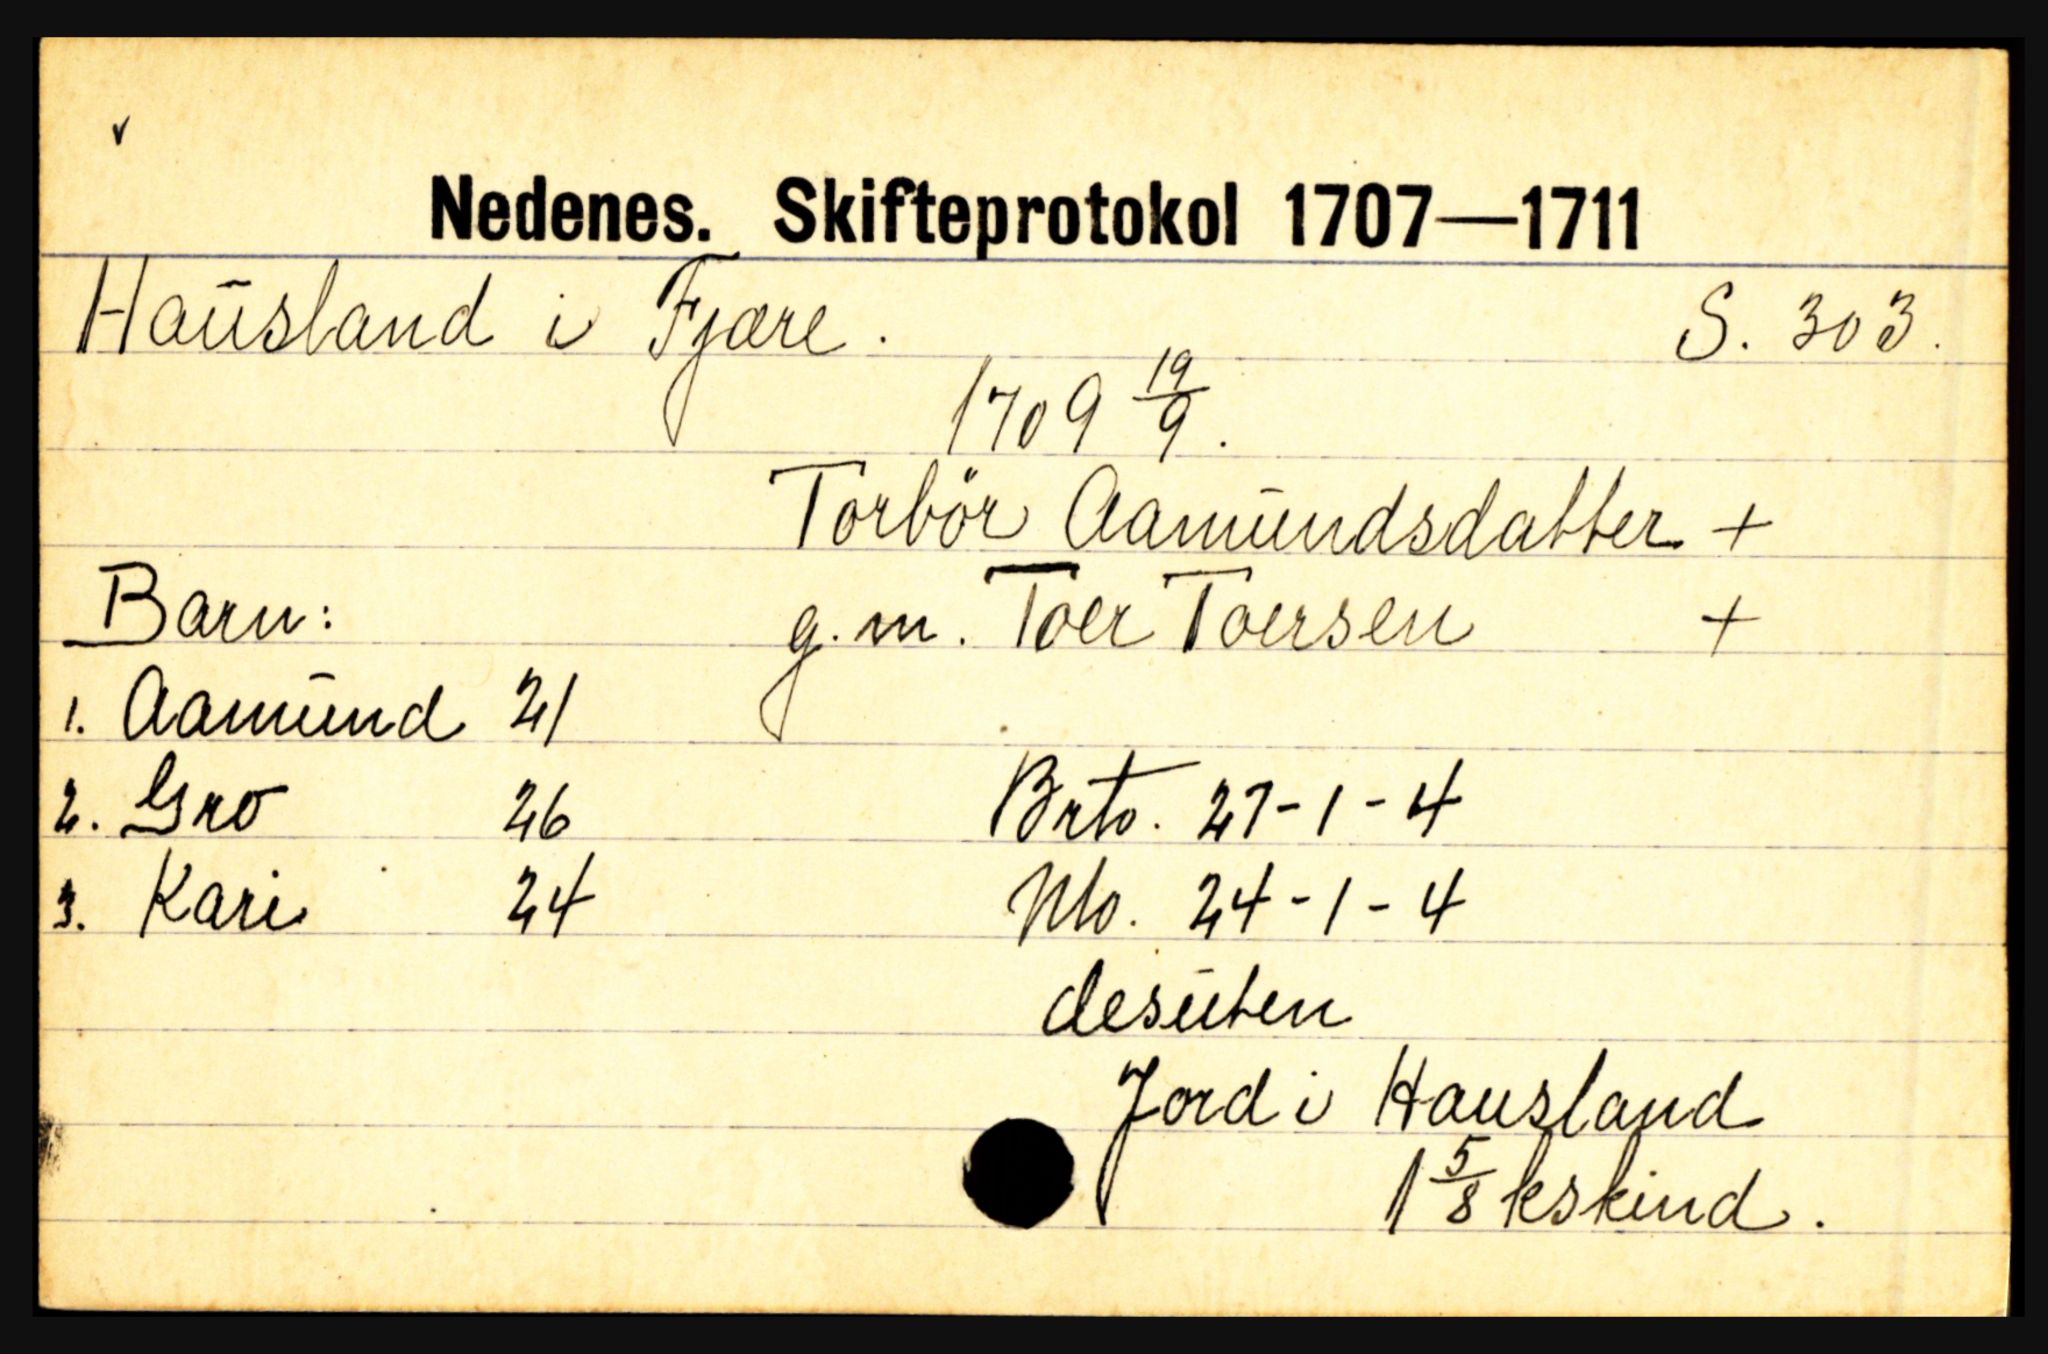 Nedenes. Skifteprotokol 1707—1711
Haūsland i Fjære. S. 303.
1709 19/9.
Torbör Aamūndsdatter +
Barn: g.m. Toer Toersen +
1. Aamūnd 21
2. Gro 26 Brto. 27-1-4
3. Kari 24 Nto. 24-1-4
desūten
Jord i Hausland
1 5/8 kskind.